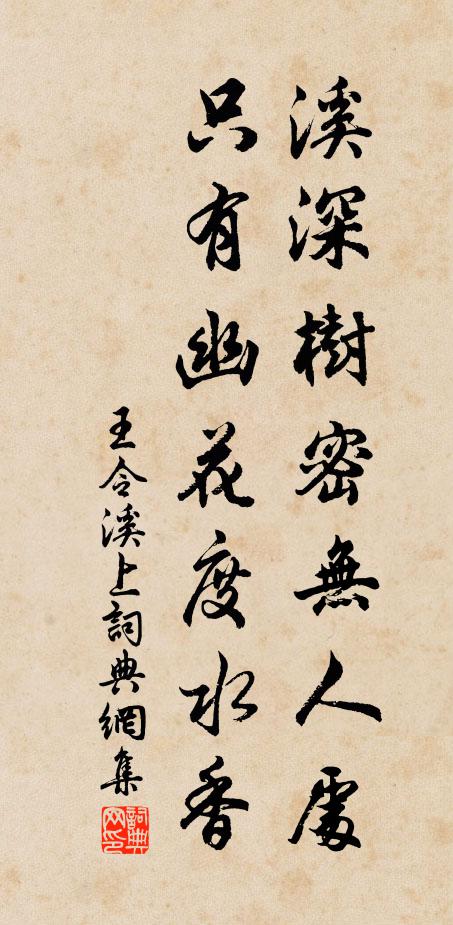 溪深樹密無人處
只有幽花度水香
王令溪上詞典網集
詞典网印